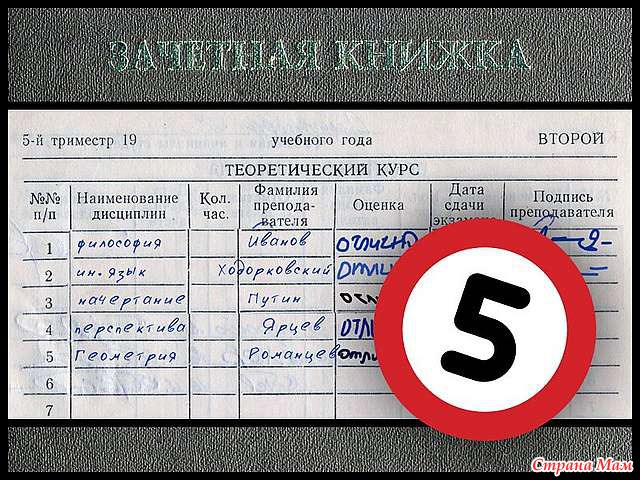 ЗАЧЕТНАЯ КНИЖКА
5-й триместр 19 учебного года ВТОРОЙ
ТЕОРЕТИЧЕСКИЙ КУРС
№№ п/п Наименование дисциплин Кол. час. Фамилия препода- вателя Оценка Дата сдачи экзамена Подпись преподавателя
1 философия Иванов отлично
2 ин. язык Ходорковский отли
3 начертание Путин отл
4 перспектива Ярцев отл
5 Геометрия Романцев отли
6
7
5
Страна Мам